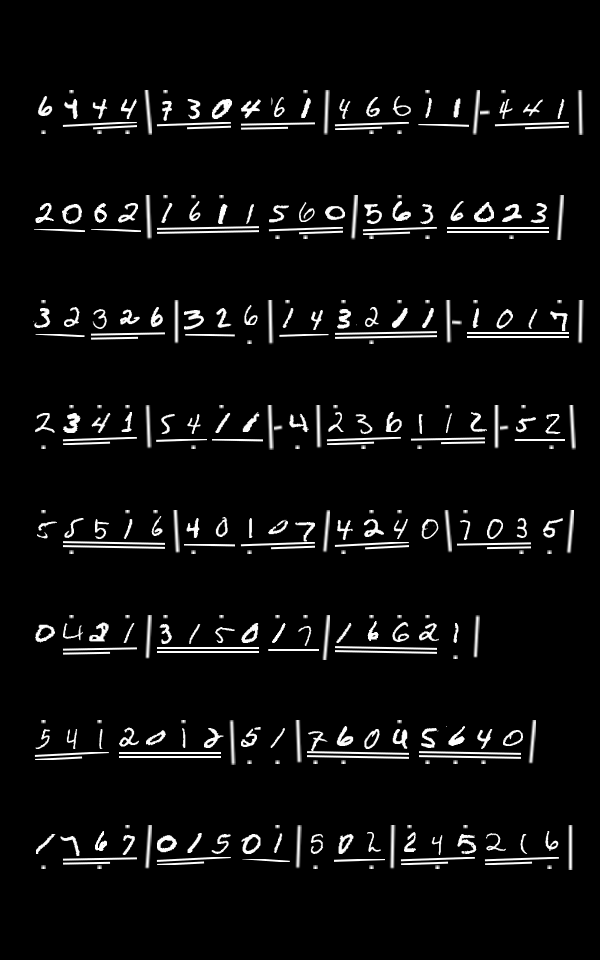 6 4 4 4 | 7 3 0 4 6 1 | 4 6 6 1 1 | - 4 4 1
2 0 6 2 | 1 6 1 1 5 6 0 | 5 6 3 6 0 2 3
3 2 3 2 6 | 3 2 6 | 1 4 3 2 1 1 | - 1 0 1 7 |
2 3 4 1 | 5 4 1 1 | - 4 | 2 3 6 1 1 2 | - 5 2 |
5 5 5 1 6 | 4 0 1 0 7 | 4 2 4 0 | 7 0 3 5 |
0 4 2 1 | 3 1 5 0 1 7 | 1 6 6 2 1 |
5 4 1 2 0 1 2 | 5 1 | 7 6 0 4 5 6 4 0 |
1 7 6 7 | 0 1 5 0 1 | 5 0 2 | 2 4 5 2 1 6 |